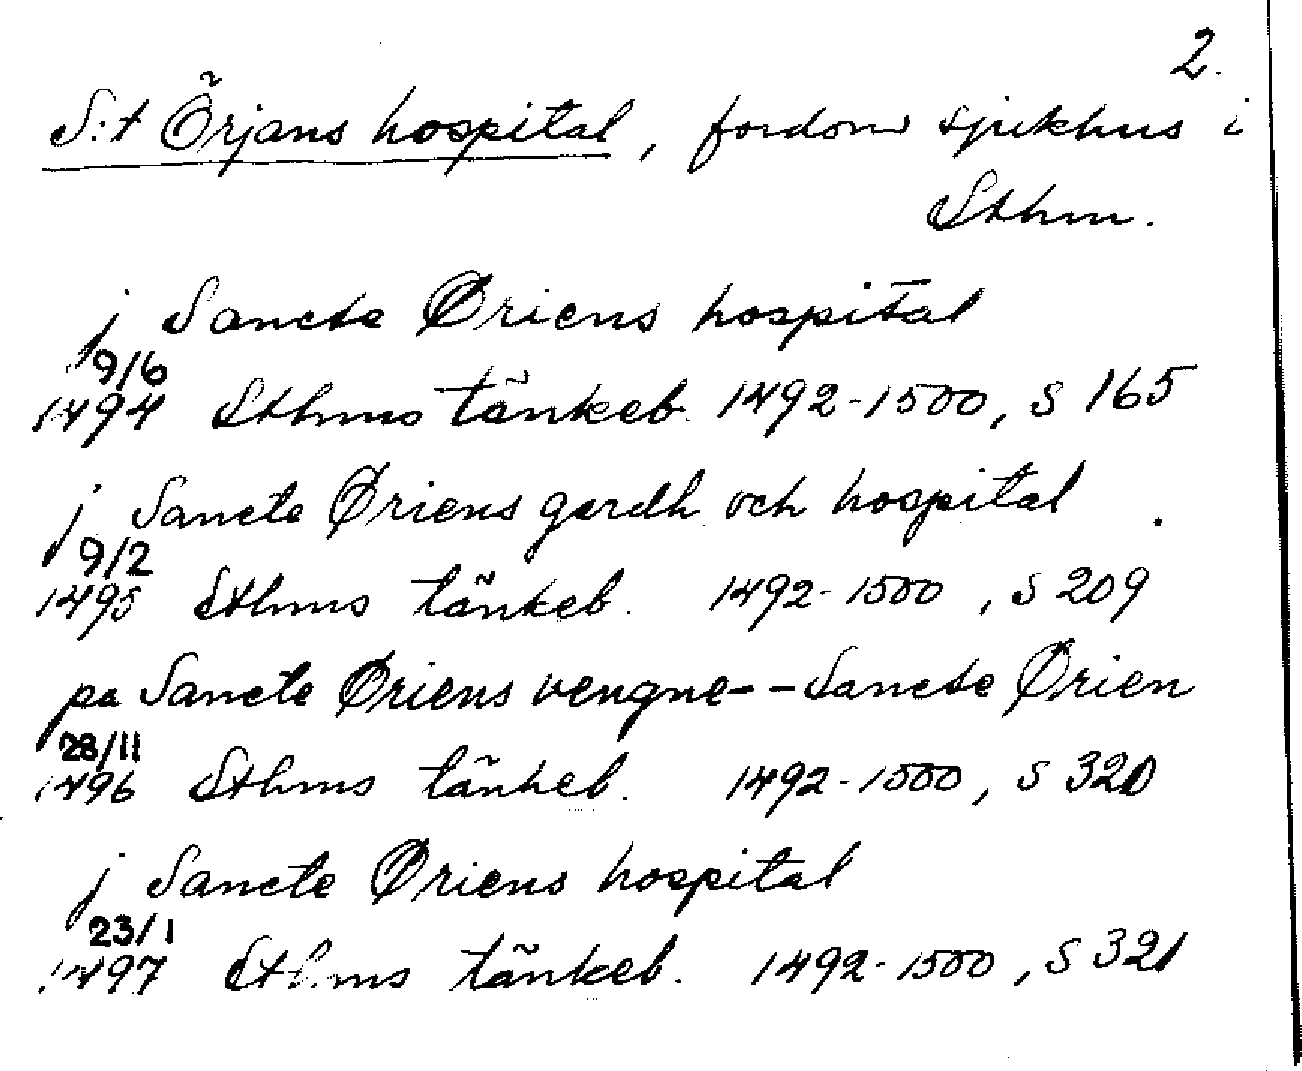 2.
S:t Örjans hospital, fordom sjukhus i
Sthm.
j Sancte Øriens hospital
9/6
1494 Sthms tänkeb. 1492-1500, s 165
j Sancte Øriens gerdh och hospital
9/2
1495 Sthms tänkeb. 1492-1500, s 209
pa Sancte Øriens vengne--Sancte Ørien
28/11
1496 Sthms tänkeb. 1492-1500, s 320
j Sancte Øriens hospital
23/1
1497 Sthms tänkeb. 1492-1500, s 321